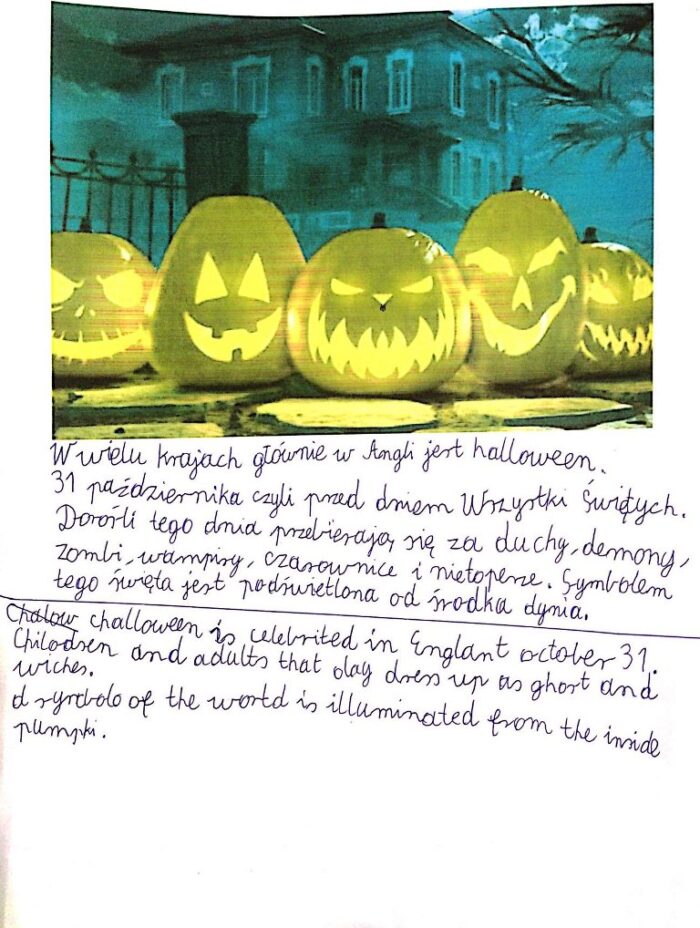 W wielu krajach głównie w Angli jest halloween.
31 października czyli przed dniem Wszystki Świętych.
Dorośli tego dnia przebierają się za duchy, demony,
zombi, wampiry, czarownice i nietoperze. Symbolem
tego święta jest podświetlona od środka dynia.
Chalow challoween is celebrited in Englant october 31.
Chilodsen and adults that day dress up as ghost and
wiches.
d syrdolo of the world is illuminated from the inside
pumpki.